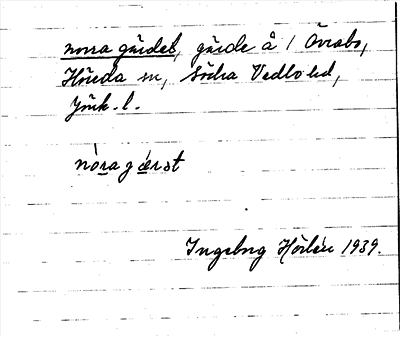 norra gärdet, gärde å 1 Övrabo,
Höreda sn, Södra Vedbo hd,
Jönk. l.
nòra gǽrət
Ingeborg Hörlén 1939.